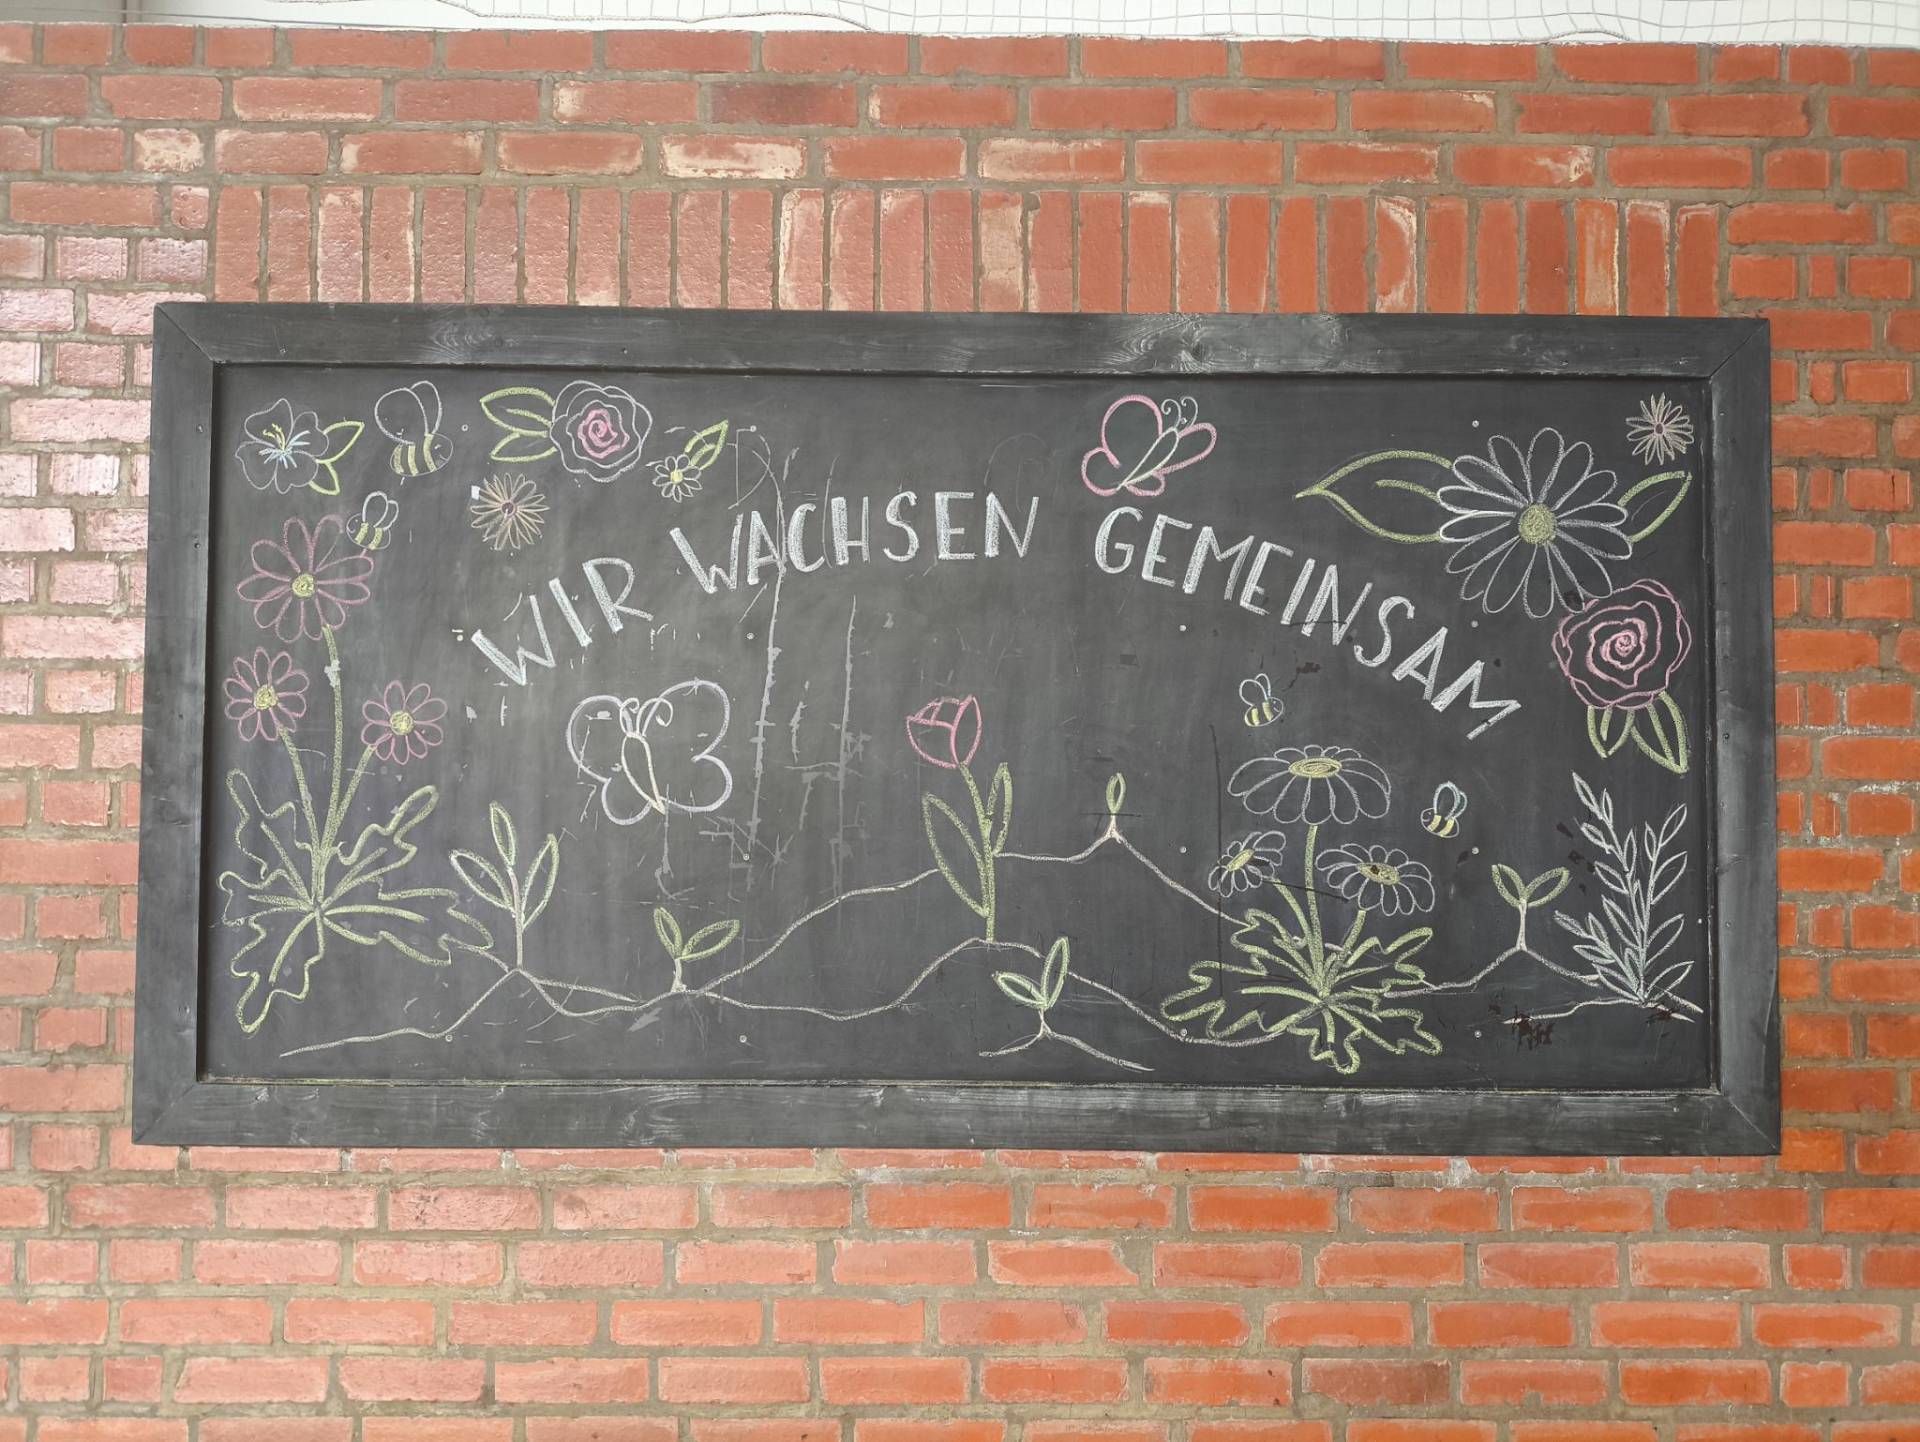 WIR WACHSEN GEMEINSAM